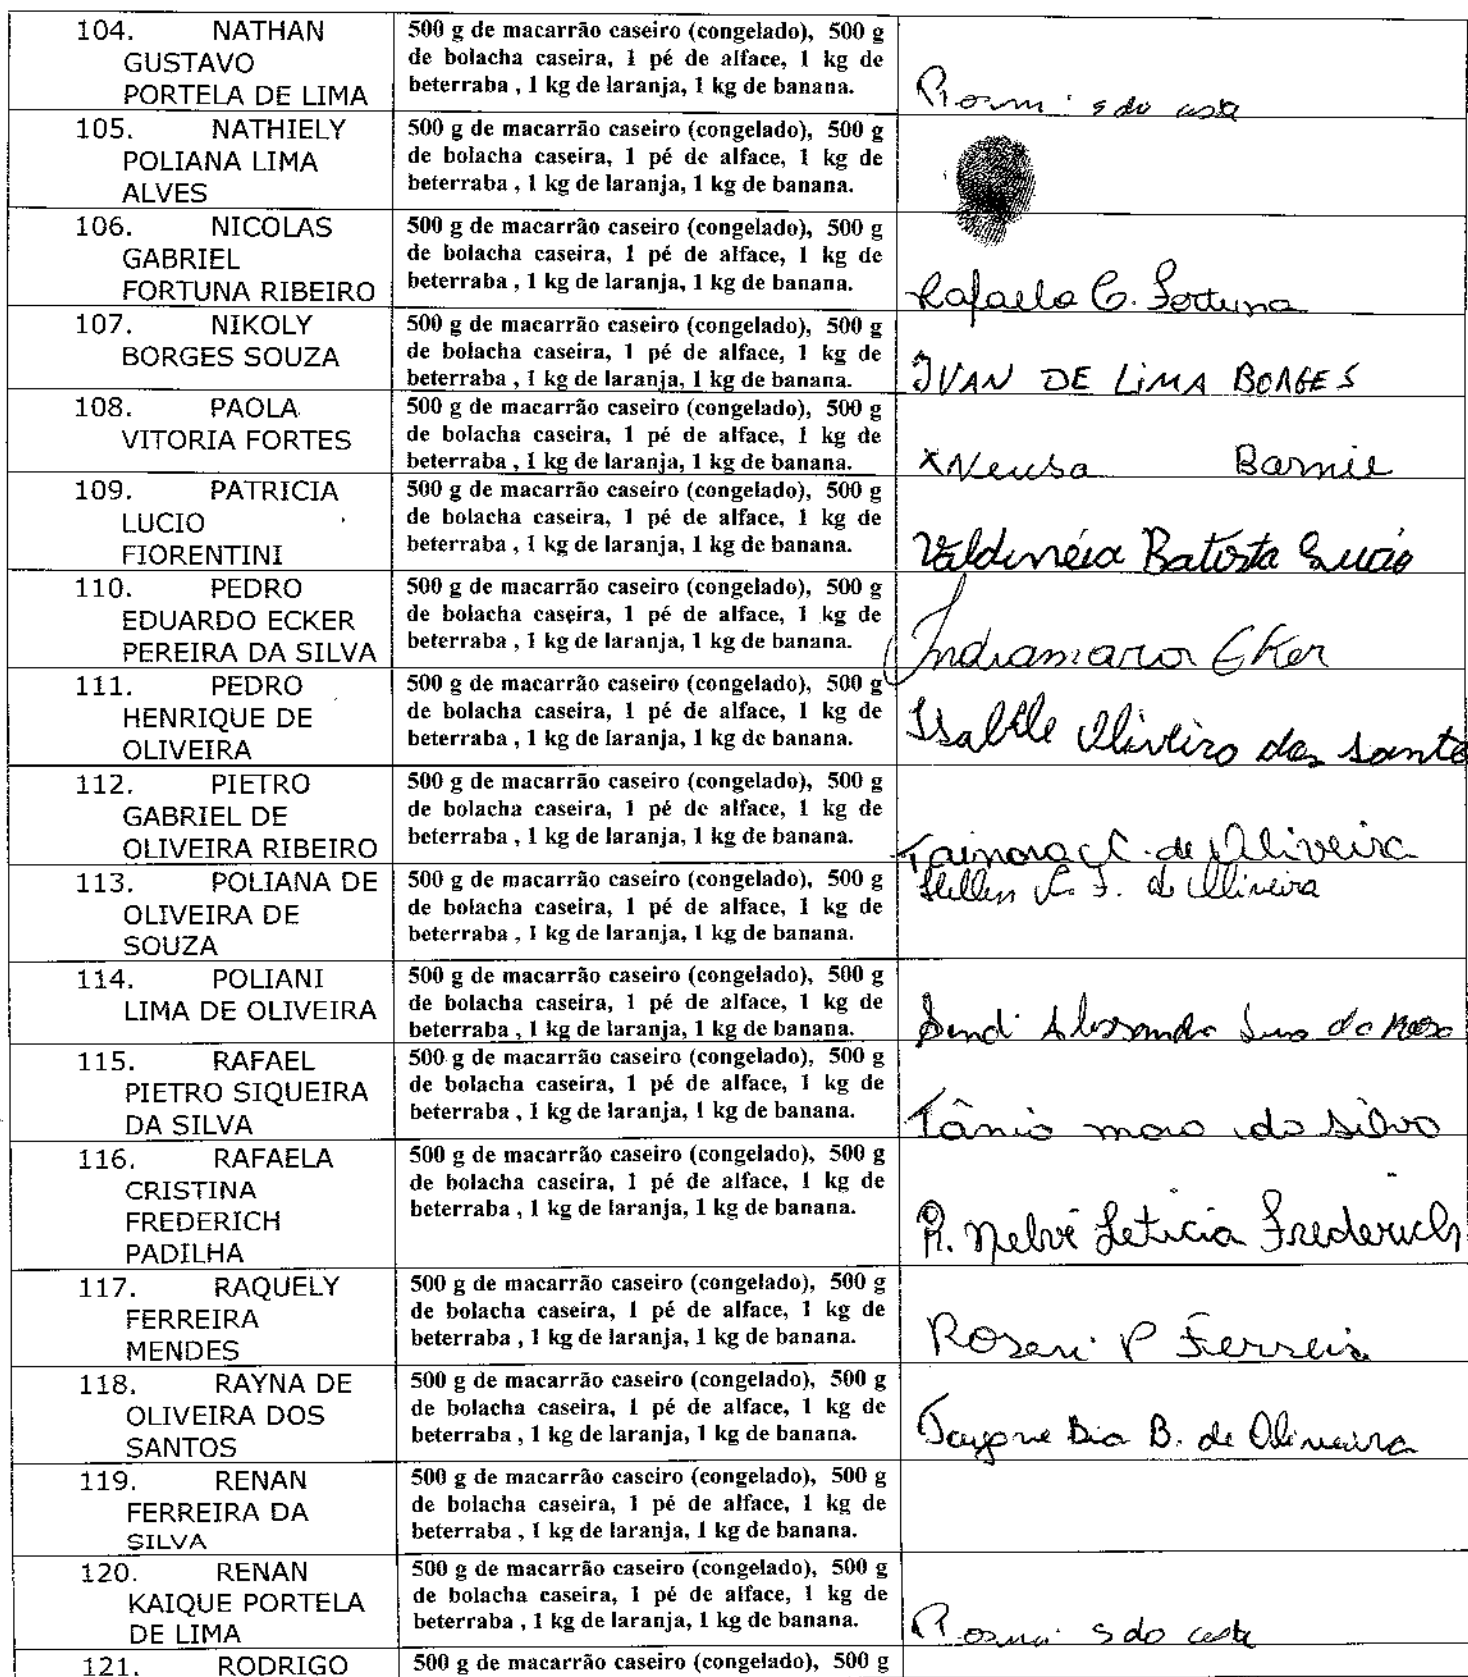 104. NATHAN
GUSTAVO
PORTELA DE LIMA
500 g de macarrão caseiro (congelado), 500 g
de bolacha caseira, 1 pé de alface, 1 kg de
beterraba , 1 kg de laranja, 1 kg de banana.
105. NATHIELY
POLIANA LIMA
ALVES
500 g de macarrão caseiro (congelado), 500 g
de bolacha caseira, 1 pé de alface, 1 kg de
beterraba , 1 kg de laranja, 1 kg de banana.
106. NICOLAS
GABRIEL
FORTUNA RIBEIRO
500 g de macarrão caseiro (congelado), 500 g
de bolacha caseira, 1 pé de alface, 1 kg de
beterraba , 1 kg de laranja, 1 kg de banana.
Rafaela C. Fortuna
107. NIKOLY
BORGES SOUZA
500 g de macarrão caseiro (congelado), 500 g
de bolacha caseira, 1 pé de alface, 1 kg de
beterraba , 1 kg de laranja, 1 kg de banana.
IVAN DE LIMA BORGES
108. PAOLA
VITORIA FORTES
500 g de macarrão caseiro (congelado), 500 g
de bolacha caseira, 1 pé de alface, 1 kg de
beterraba , 1 kg de laranja, 1 kg de banana.
x Neusa
109. PATRICIA
LUCIO
FIORENTINI
500 g de macarrão caseiro (congelado), 500 g
de bolacha caseira, 1 pé de alface, 1 kg de
beterraba , 1 kg de laranja, 1 kg de banana.
Valdinéia Batista Lucio
110. PEDRO
EDUARDO ECKER
PEREIRA DA SILVA
500 g de macarrão caseiro (congelado), 500 g
de bolacha caseira, 1 pé de alface, 1 kg de
beterraba , 1 kg de laranja, 1 kg de banana.
Indiamara EKer
111. PEDRO
HENRIQUE DE
OLIVEIRA
500 g de macarrão caseiro (congelado), 500 g
de bolacha caseira, 1 pé de alface, 1 kg de
beterraba , 1 kg de laranja, 1 kg de banana.
Oliveira dos santo
112. PIETRO
GABRIEL DE
OLIVEIRA RIBEIRO
500 g de macarrão caseiro (congelado), 500 g
de bolacha caseira, 1 pé de alface, 1 kg de
beterraba , 1 kg de laranja, 1 kg de banana.
de Oliveira
113. POLIANA DE
OLIVEIRA DE
SOUZA
500 g de macarrão caseiro (congelado), 500 g
de bolacha caseira, 1 pé de alface, 1 kg de
beterraba , 1 kg de laranja, 1 kg de banana.
de Oliveira
114. POLIANI
LIMA DE OLIVEIRA
500 g de macarrão caseiro (congelado), 500 g
de bolacha caseira, 1 pé de alface, 1 kg de
beterraba , 1 kg de laranja, 1 kg de banana.
115. RAFAEL
PIETRO SIQUEIRA
DA SILVA
500 g de macarrão caseiro (congelado), 500 g
de bolacha caseira, 1 pé de alface, 1 kg de
beterraba , 1 kg de laranja, 1 kg de banana.
Tânia da Silva
116. RAFAELA
CRISTINA
FREDERICH
PADILHA
500 g de macarrão caseiro (congelado), 500 g
de bolacha caseira, 1 pé de alface, 1 kg de
beterraba , 1 kg de laranja, 1 kg de banana.
Leticia Frederich
117. RAQUELY
FERREIRA
MENDES
500 g de macarrão caseiro (congelado), 500 g
de bolacha caseira, 1 pé de alface, 1 kg de
beterraba , 1 kg de laranja, 1 kg de banana.
Roseni P Ferreira
118. RAYNA DE
OLIVEIRA DOS
SANTOS
500 g de macarrão caseiro (congelado), 500 g
de bolacha caseira, 1 pé de alface, 1 kg de
beterraba , 1 kg de laranja, 1 kg de banana.
B. de Oliveira
119. RENAN
FERREIRA DA
SILVA
500 g de macarrão caseiro (congelado), 500 g
de bolacha caseira, 1 pé de alface, 1 kg de
beterraba , 1 kg de laranja, 1 kg de banana.
120. RENAN
KAIQUE PORTELA
DE LIMA
500 g de macarrão caseiro (congelado), 500 g
de bolacha caseira, 1 pé de alface, 1 kg de
beterraba , 1 kg de laranja, 1 kg de banana.
121. RODRIGO
500 g de macarrão caseiro (congelado), 500 g